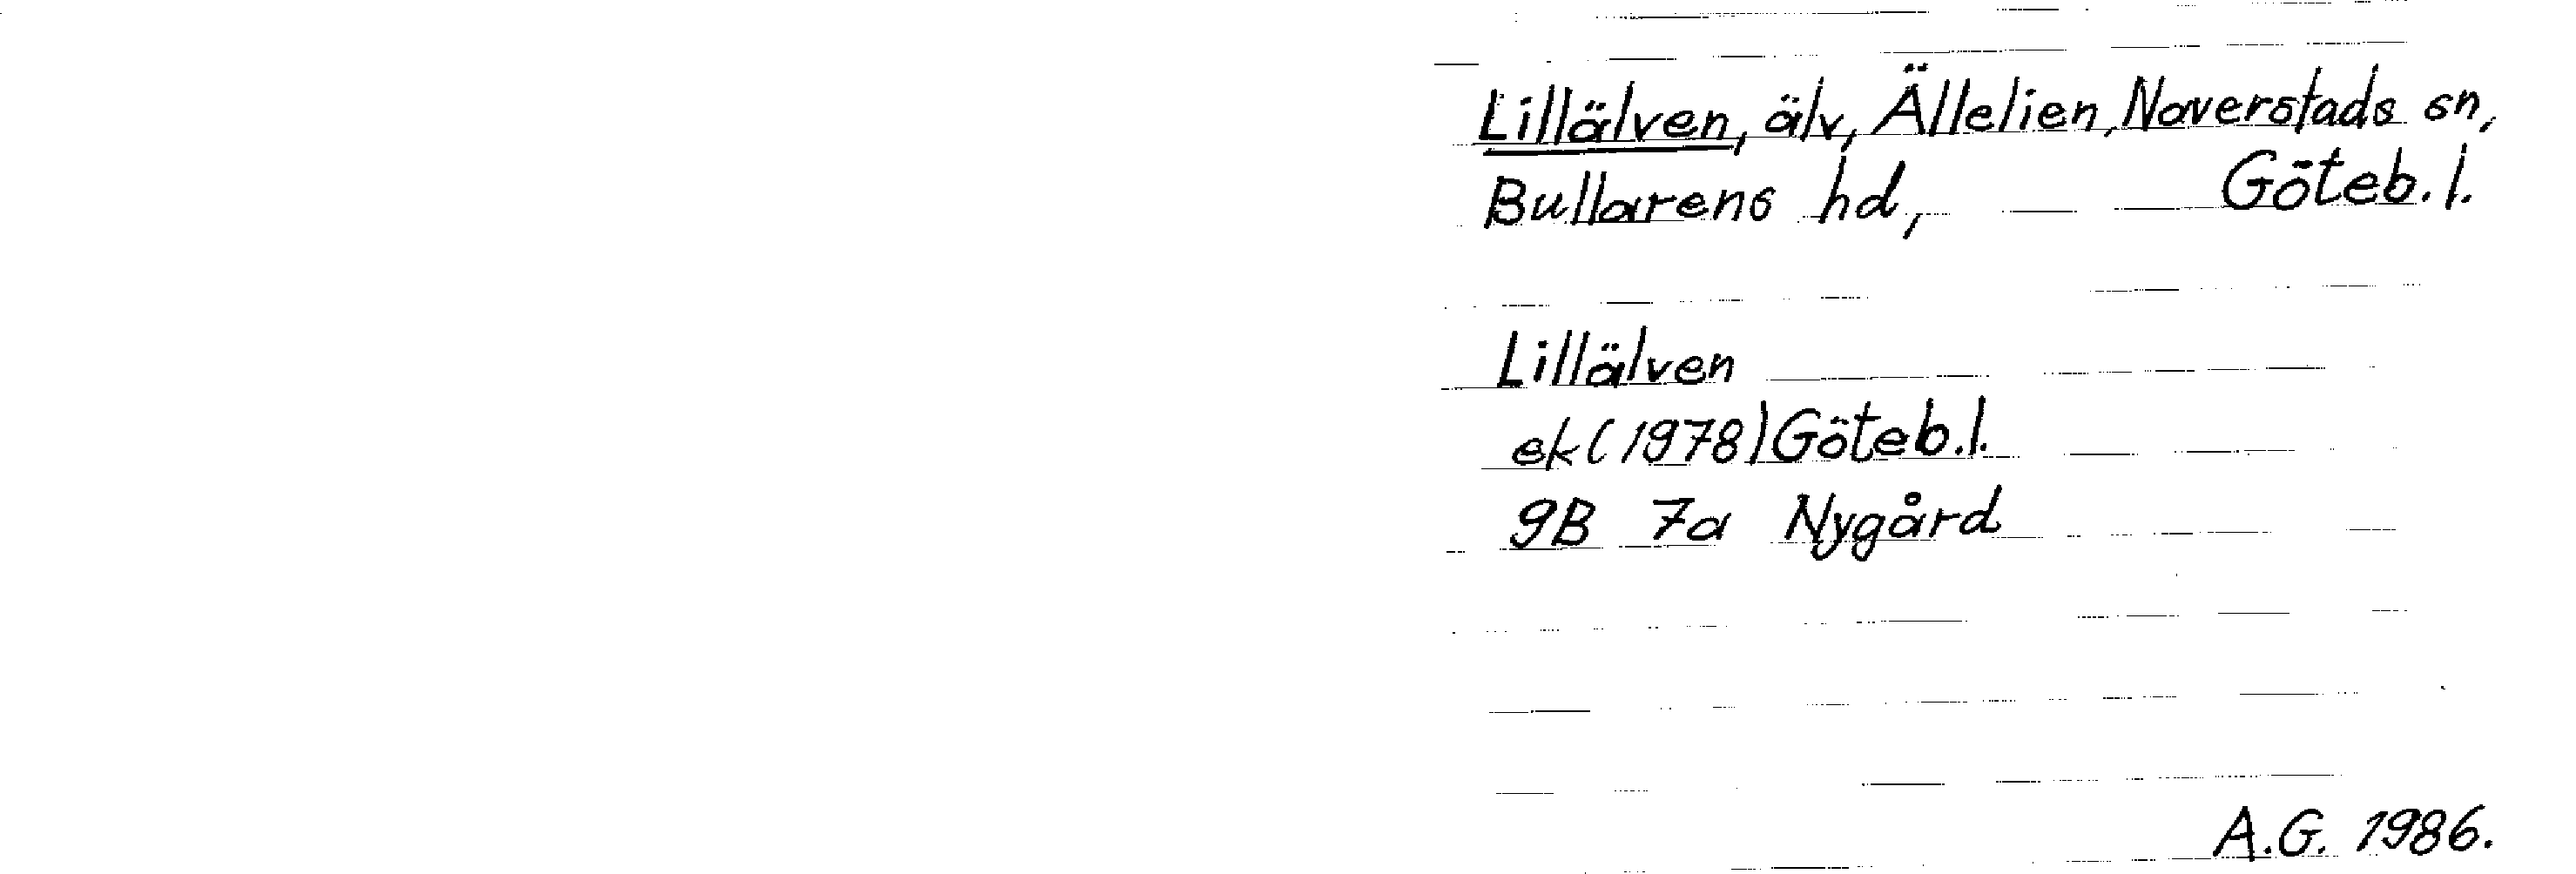 Lillälven, älv, Ällelien, Naverstads sn,
Bullarens hd, Göteb.l.
Lillälven
ek(1978)Göteb.l.
9B 7a Nygård
A.G. 1986.